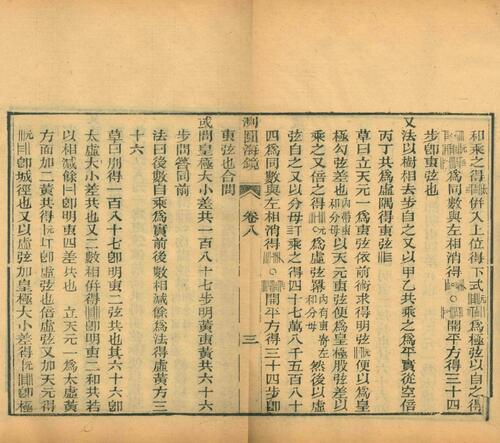 和乘之得併入上位得下式極弦以自之得
爲同數與左相消得開平方得三十四
步即東弦也
又法以樹相去步自之又以甲乙共乘之爲平實從空倍
丙丁共爲虛隅得東弦
草曰立天元一爲東弦依前術求得明弦便以爲皇
極勾弦差也內帶東和分母以天元東弦便爲皇極股弦差以
乘之又倍之得元爲虛弦冪內有東和分母寄左然後以虛
弦自之又以分母乘之得四十七萬八千五百八十
四爲同數與左相消得開平方得三十四步即
東弦也合問
測圓海鏡 卷八 三
或問皇極大小差共一百八十七步明黃東黃共六十六
步問答同前
法曰後數自乘爲實前後數相減餘爲法得虛黃方三
十六
草曰別得一百八十七即明東二弦共也其六十六即
太虛大小差共也又二數相併得即明東二和共若
以相減餘即明東四差共也 立天元一爲太虛黃
方面加二黃共得即虛弦也倍虛弦又加天元得
即城徑也又以虛弦加皇極大小差得即極